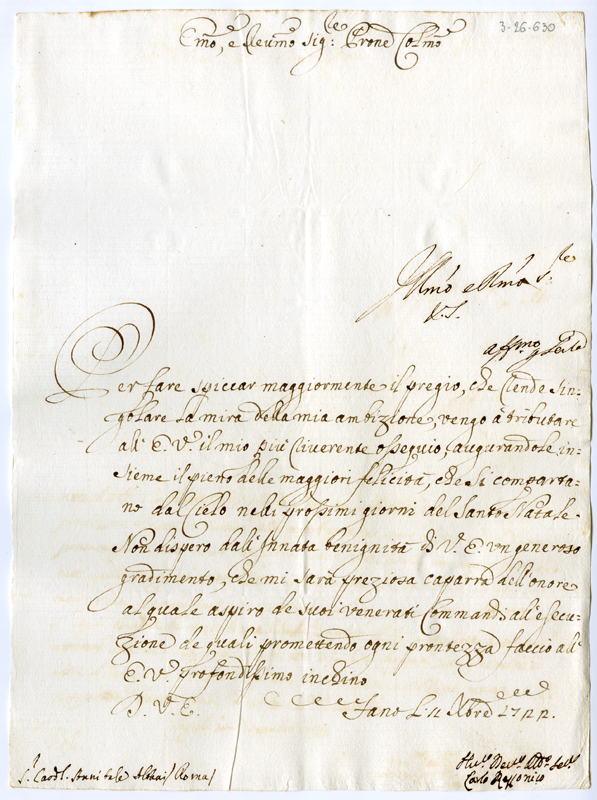 3-26-630
Emo, e Reumo Sig:re Prone Colmo
Illmo e Rmo S.re
V.S.
affmo
Per fare spiccar maggiormente il pregio, che rende sin-
golare la mira della mia ambizione, vengo à tributare
all' E. V. il mio più riverente ossequio, augurandole in-
sieme il pieno delle maggiori felicità, che si comparta-
no dal Cielo nelli prossimi giorni del Santo Natale.
Non dispero dall' Innata benignità di V. E. un generoso
gradimento, che mi sarà preziosa caparra dell' onore
al quale aspiro de suoi venerati Commandi, all' esecu-
zione de quali promettendo ogni prontezza faccio all'
E. V. Profondissimo inchino
D. V. E. Fano Li 11 Xbre 1722.
S.r Card.l Annibale Albani / Roma /
Hu.o Dev.o Obb.o Se.re
Carlo Rezzonico